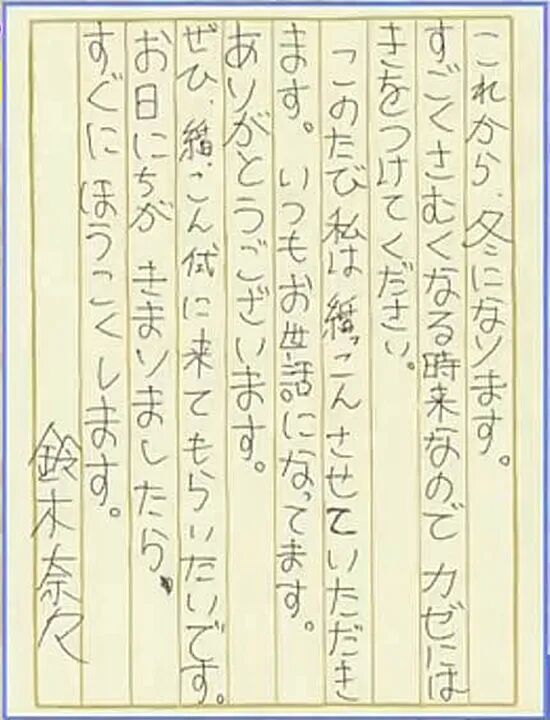 これから、冬になります。
すごくさむくなる時来なので カゼには
きをつけてください。
このたび私は 結っこんさせていただき
ます。いつもお世話になってます。
ありがとうございます。
ぜひ、結こん式に来てもらいたいです。
お日にちが きまりましたら、
すぐに ほうこくします。
鈴木奈々